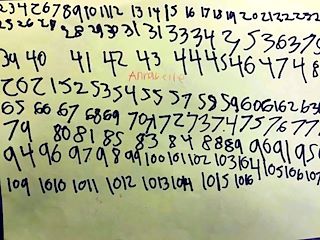 2 3 4 2 6 7 8 9 10 11 12 13 14 15 16 17 18 19 20 21 22 23 2
25 26 2 28 29 30 31 31 33 34 2 5 36 37
39 40 41 42 43 44 45 46 47 4 8
Annabelle
2 6 2 1 52 53 54 55 57 58 59 60 61 62 63
65 66 67 68 69 70 71 72 73 7.4 75 76 77
79 80 81 85 83 84 88 89 96 91 95
94 96 97 98 99 100 101 102 103 104 105 106 107
109 1010 1011 1012 1013 1014 1015 1016